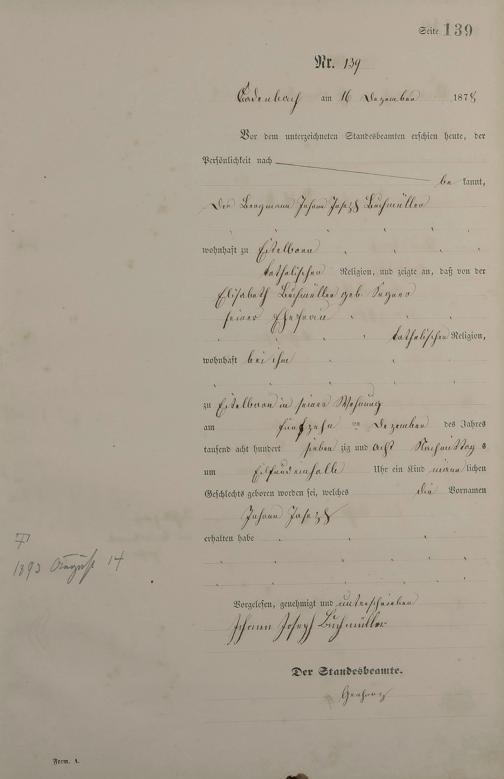 Seite 139
Nr. 139
Cadenbach am 16 Dezember 1878
Vor dem unterzeichneten Standesbeamten erschien heute, der
Persönlichkeit nach
be kannt,
Der Bergmann Johann Joseph Buchmüller
wohnhaft zu Eitelborn
katholischer Religion, und zeigte an, daß von der
Elisabeth Buchmüller geb
seiner Ehefrau
katholischer Religion,
wohnhaft bei ihm
zu Eitelborn in seiner Wohnung
am fünfzehn ten Dezember des Jahres
tausend acht hundert sieben zig und acht Nachmittag s
um Elfundeinhalb Uhr ein Kind männ lichen
Geschlechts geboren worden sei, welches die Vornamen
Johann Joseph
erhalten habe
1893 August 14
Vorgelesen, genehmigt und unterschrieben
Johann Joseph Buchmüller
Der Standesbeamte.
Form. A.